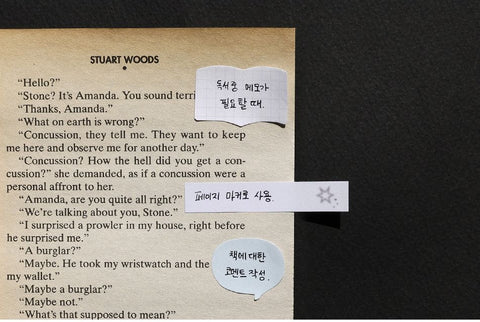 STUART WOODS
“Hello?”
“Stone? It’s Amanda. You sound terri
“Thanks, Amanda.”
“What on earth is wrong?”
“Concussion, they tell me. They want to keep
me here and observe me for another day.”
“Concussion? How the hell did you get a con-
cussion?” she demanded, as if a concussion were a
personal affront to her.
“Amanda, are you quite all right?”
“We’re talking about you, Stone.”
“I surprised a prowler in my house, right before
he surprised me.”
“A burglar?”
“Maybe. He took my wristwatch and the
my wallet.”
“Maybe a burglar?”
“Maybe not.”
“What’s that supposed to mean?”
독서중 메모가
필요할 때.
페이지 마커로 사용.
책에 대한
코멘트 작성.